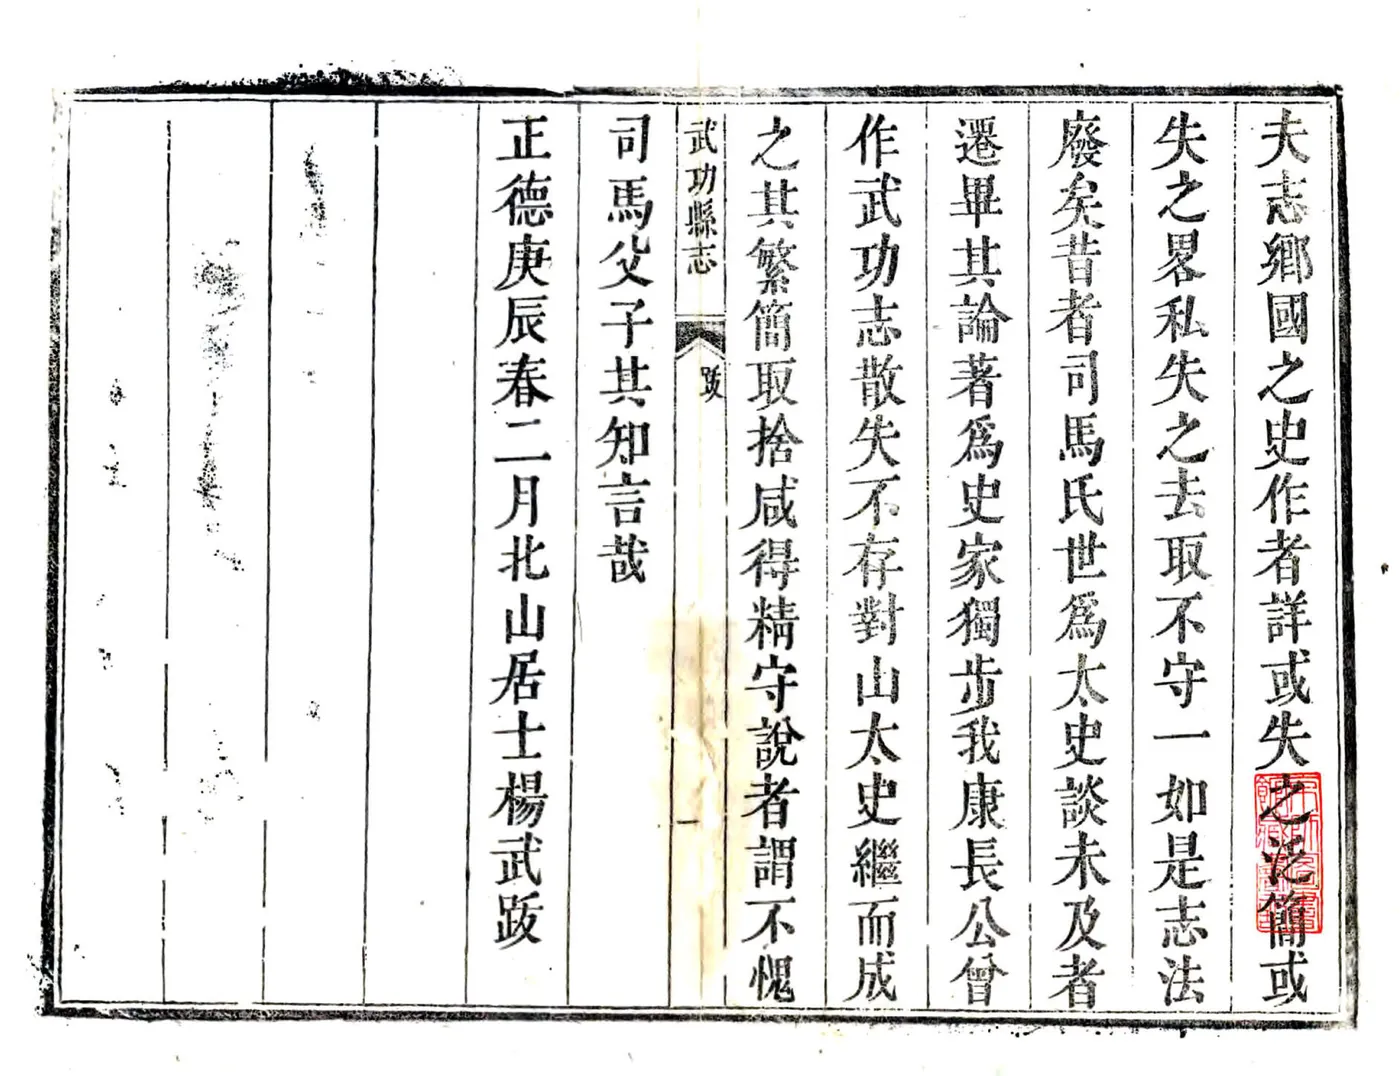 夫志鄉國之史作者詳或失之泛簡或
失之畧私失之去取不守一如是志法
廢矣昔者司馬氏世爲太史談未及者
遷畢其論著爲史家獨步我康長公曾
作武功志散失不存對山太史繼而成
之其繁簡取捨咸得精守說者謂不愧
武功縣志
跋
一
司馬父子其知言哉
正德庚辰春二月北山居士楊武跋